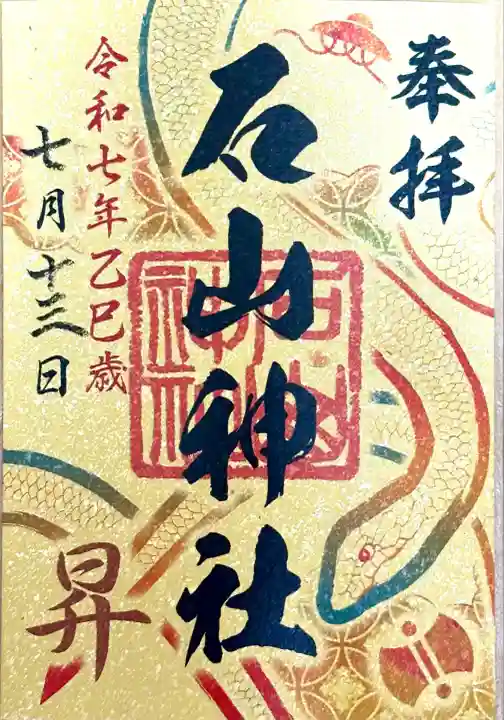 奉拝
石山神社
石山神社
令和七年乙巳歳
七月十三日
昇